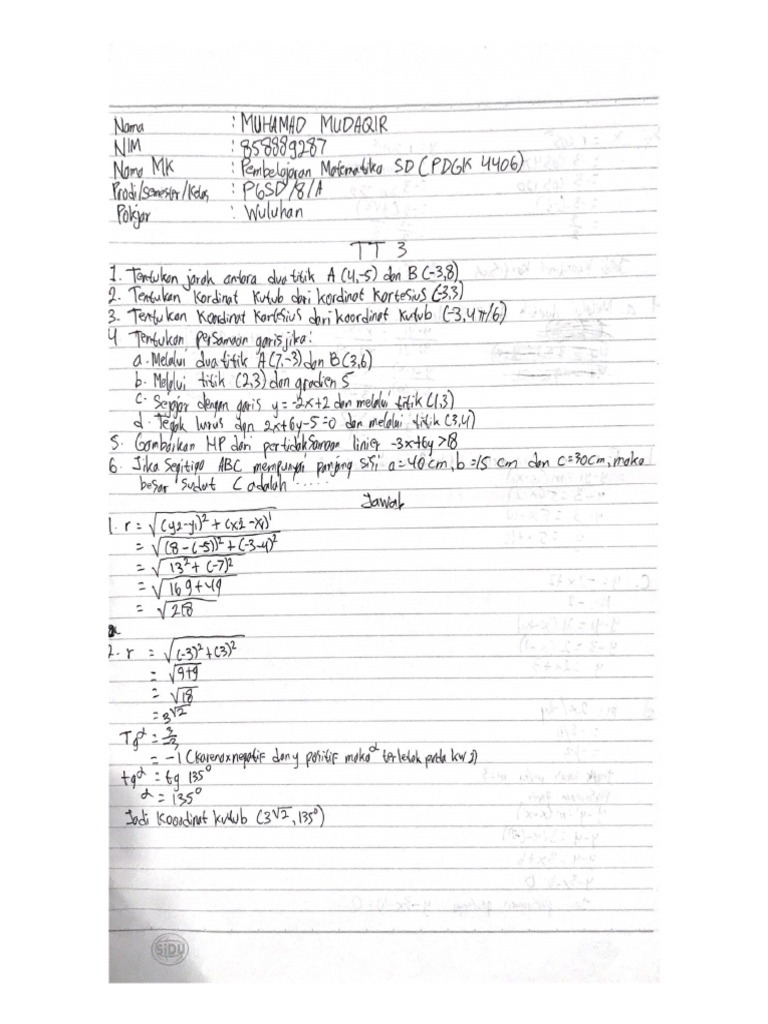 Nama : MUHAMAD MUDAQIR
NIM : 858889287
Nama MK : Pembelajaran Matematika SD (PDGK 4406)
Prodi/Semester/Kelas : PGSD/8/A
Pokjar : Wuluhan
TT 3
1. Tentukan jarak antara dua titik A (4,-5) dan B (-3,8)
2. Tentukan Kordinat Kutub dari kordinat kartesius (-3,3)
3. Tentukan Koordinat Kartesius dari koordinat kutub (-3,4π/6)
4 Tentukan persamaan garis jika:
a. Melalui dua titik A(7,-3) dan B(3,6)
b. Melalui titik (2,3) dan gradien 5
c. Sejajar dengan garis y = -2x+2 dan melalui titik (1,3)
d. Tegak lurus dan 2x+6y-5=0 dan melalui titik (3,4)
5. Gambarkan HP dari pertidaksamaan linier -3x+6y>18
6. Jika Segitiga ABC mempunyai panjang sisi a=40 cm, b=15 cm dan c=30cm, maka
besar sudut C adalah .....
Jawab
1. r = √(y2-y1)² + (x2-x1)²
= √(8-(-5))² + (-3-4)²
= √13² + (-7)²
= √169+49
= √218
2. r = √(-3)² + (3)²
= √9+9
= √18
= 3√2
Tg α = 3/-3
= -1 (karena x negatif dan y positif maka α terletak pada kw 2)
tg α = tg 135°
α = 135°
Jadi Koordinat kutub (3√2, 135°)
SiDU